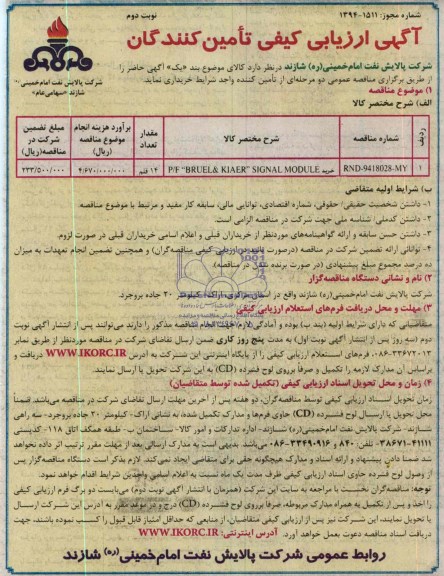 شماره مجوز: ۱۵۱۱-۱۳۹۴
نوبت دوم
آگهی ارزیابی کیفی تأمین کنندگان
شرکت پالایش نفت امام خمینی(ره)
شازند «سهامی عام»
شرکت پالایش نفت امام‌خمینی(ره) شازند درنظر دارد کالای موضوع بند «یک» آگهی حاضر را
از طریق برگزاری مناقصه عمومی دو مرحله‌ای از تأمین کننده واجد شرایط خریداری نماید.
۱) موضوع مناقصه
الف) شرح مختصر کالا
ردیف
شماره مناقصه
شرح مختصر کالا
مقدار تعداد
برآورد هزینه انجام موضوع مناقصه (ریال)
مبلغ تضمین شرکت در مناقصه(ریال)
۱
RND-9418028-MY
خرید P/F "BRUEL& KIAER" SIGNAL MODULE
۱۴ قلم
۴/۶۷۰/۰۰۰/۰۰۰
۲۳۳/۵۰۰/۰۰۰
ب) شرایط اولیه متقاضی
۱- داشتن شخصیت حقیقی/ حقوقی، شماره اقتصادی، توانایی مالی، سابقه کار مفید و مرتبط با موضوع مناقصه.
۲- داشتن کدملی/ شناسه ملی جهت شرکت در مناقصه الزامی است.
۳- داشتن حسن سابقه و ارائه گواهینامه‌های موردنظر از خریداران قبلی و اعلام اسامی خریداران قبلی در صورت لزوم.
۴- توانائی ارائه تضمین شرکت در مناقصه (درصورت تأیید در ارزیابی کیفی مناقصه‌گران) و همچنین تضمین انجام تعهدات به میزان
ده درصد مجموع مبلغ پیشنهادی (در صورت برنده شدن در مناقصه).
۲) نام و نشانی دستگاه مناقصه‌گزار
شرکت پالایش نفت امام‌خمینی(ره) شازند واقع در استان مرکزی، اراک- کیلومتر ۲۰ جاده بروجرد.
۳) مهلت و محل دریافت فرم‌های استعلام ارزیابی کیفی
متقاضیانی که دارای شرایط اولیه (بند ب) بوده و آمادگی لازم جهت انجام مناقصه مذکور را دارند می‌توانند پس از انتشار آگهی نوبت
دوم (سه روز پس از انتشار آگهی نوبت اول) به مدت پنج روز کاری ضمن ارسال تقاضای شرکت در مناقصه موردنظر از طریق نمابر
۰۸۶-۳۳۶۷۲۰۱۳، فرم‌های استعلام ارزیابی کیفی را از پایگاه اینترنتی این شرکت به آدرس WWW.IKORC.IR دریافت و
براساس آن مدارک لازمه را تکمیل و صرفاً برروی لوح فشرده (CD) به این شرکت تحویل یا ارسال نمایند.
۴) زمان و محل تحویل اسناد ارزیابی کیفی (تکمیل شده توسط متقاضیان)
زمان تحویل اسناد ارزیابی کیفی توسط مناقصه‌گران، دو هفته پس از آخرین مهلت ارسال تقاضای شرکت در مناقصه می‌باشد. ضمناً
محل تحویل یا ارسال لوح فشرده (CD) حاوی فرم‌ها و مدارک تکمیل شده، به نشانی اراک- کیلومتر ۲۰ جاده بروجرد- سه راهی
شازند- شرکت پالایش نفت امام‌خمینی(ره) شازند- اداره تدارکات و امور کالا- ساختمان ب- طبقه همکف اتاق ۱۱۸- کدپستی
۳۸۶۷۱-۴۱۱۱۱- تلفن: ۸۴۰ و ۳۳۴۹۰۹۱۶-۰۸۶ می‌باشد. بدیهی است به مدارک ارسالی بعد از مهلت مقرر ترتیب اثر داده نخواهد
شد ضمناً دادن پیشنهاد و ارائه اسناد و مدارک هیچگونه حقی برای متقاضی ایجاد نمی‌کند. لازم بذکر است دستگاه مناقصه‌گزار پس
از وصول لوح فشرده حاوی اسناد ارزیابی کیفی ظرف مدت یک ماه نسبت به اعلام اسامی واجدین شرایط اقدام خواهد نمود.
توجه: مناقصه‌گران نخست با مراجعه به سایت این شرکت (همزمان با انتشار آگهی نوبت دوم) می‌بایست دو برگ فرم ارزیابی کیفی
را اخذ و پس از تکمیل به همراه مدارک مربوطه، صرفاً برروی لوح فشرده (CD) درج و در موعد مقرر به آدرس این شرکت ارسال
یا تحویل نمایند، این شرکت نیز پس از ارزیابی کیفی متقاضیان، از منابعی که حداقل امتیاز قابل قبول را کسب نموده باشند، جهت
دریافت اسناد مناقصه دعوت بعمل خواهد آورد. آدرس اینترنتی: WWW.IKORC.IR
روابط عمومی شرکت پالایش نفت امام‌خمینی(ره) شازند